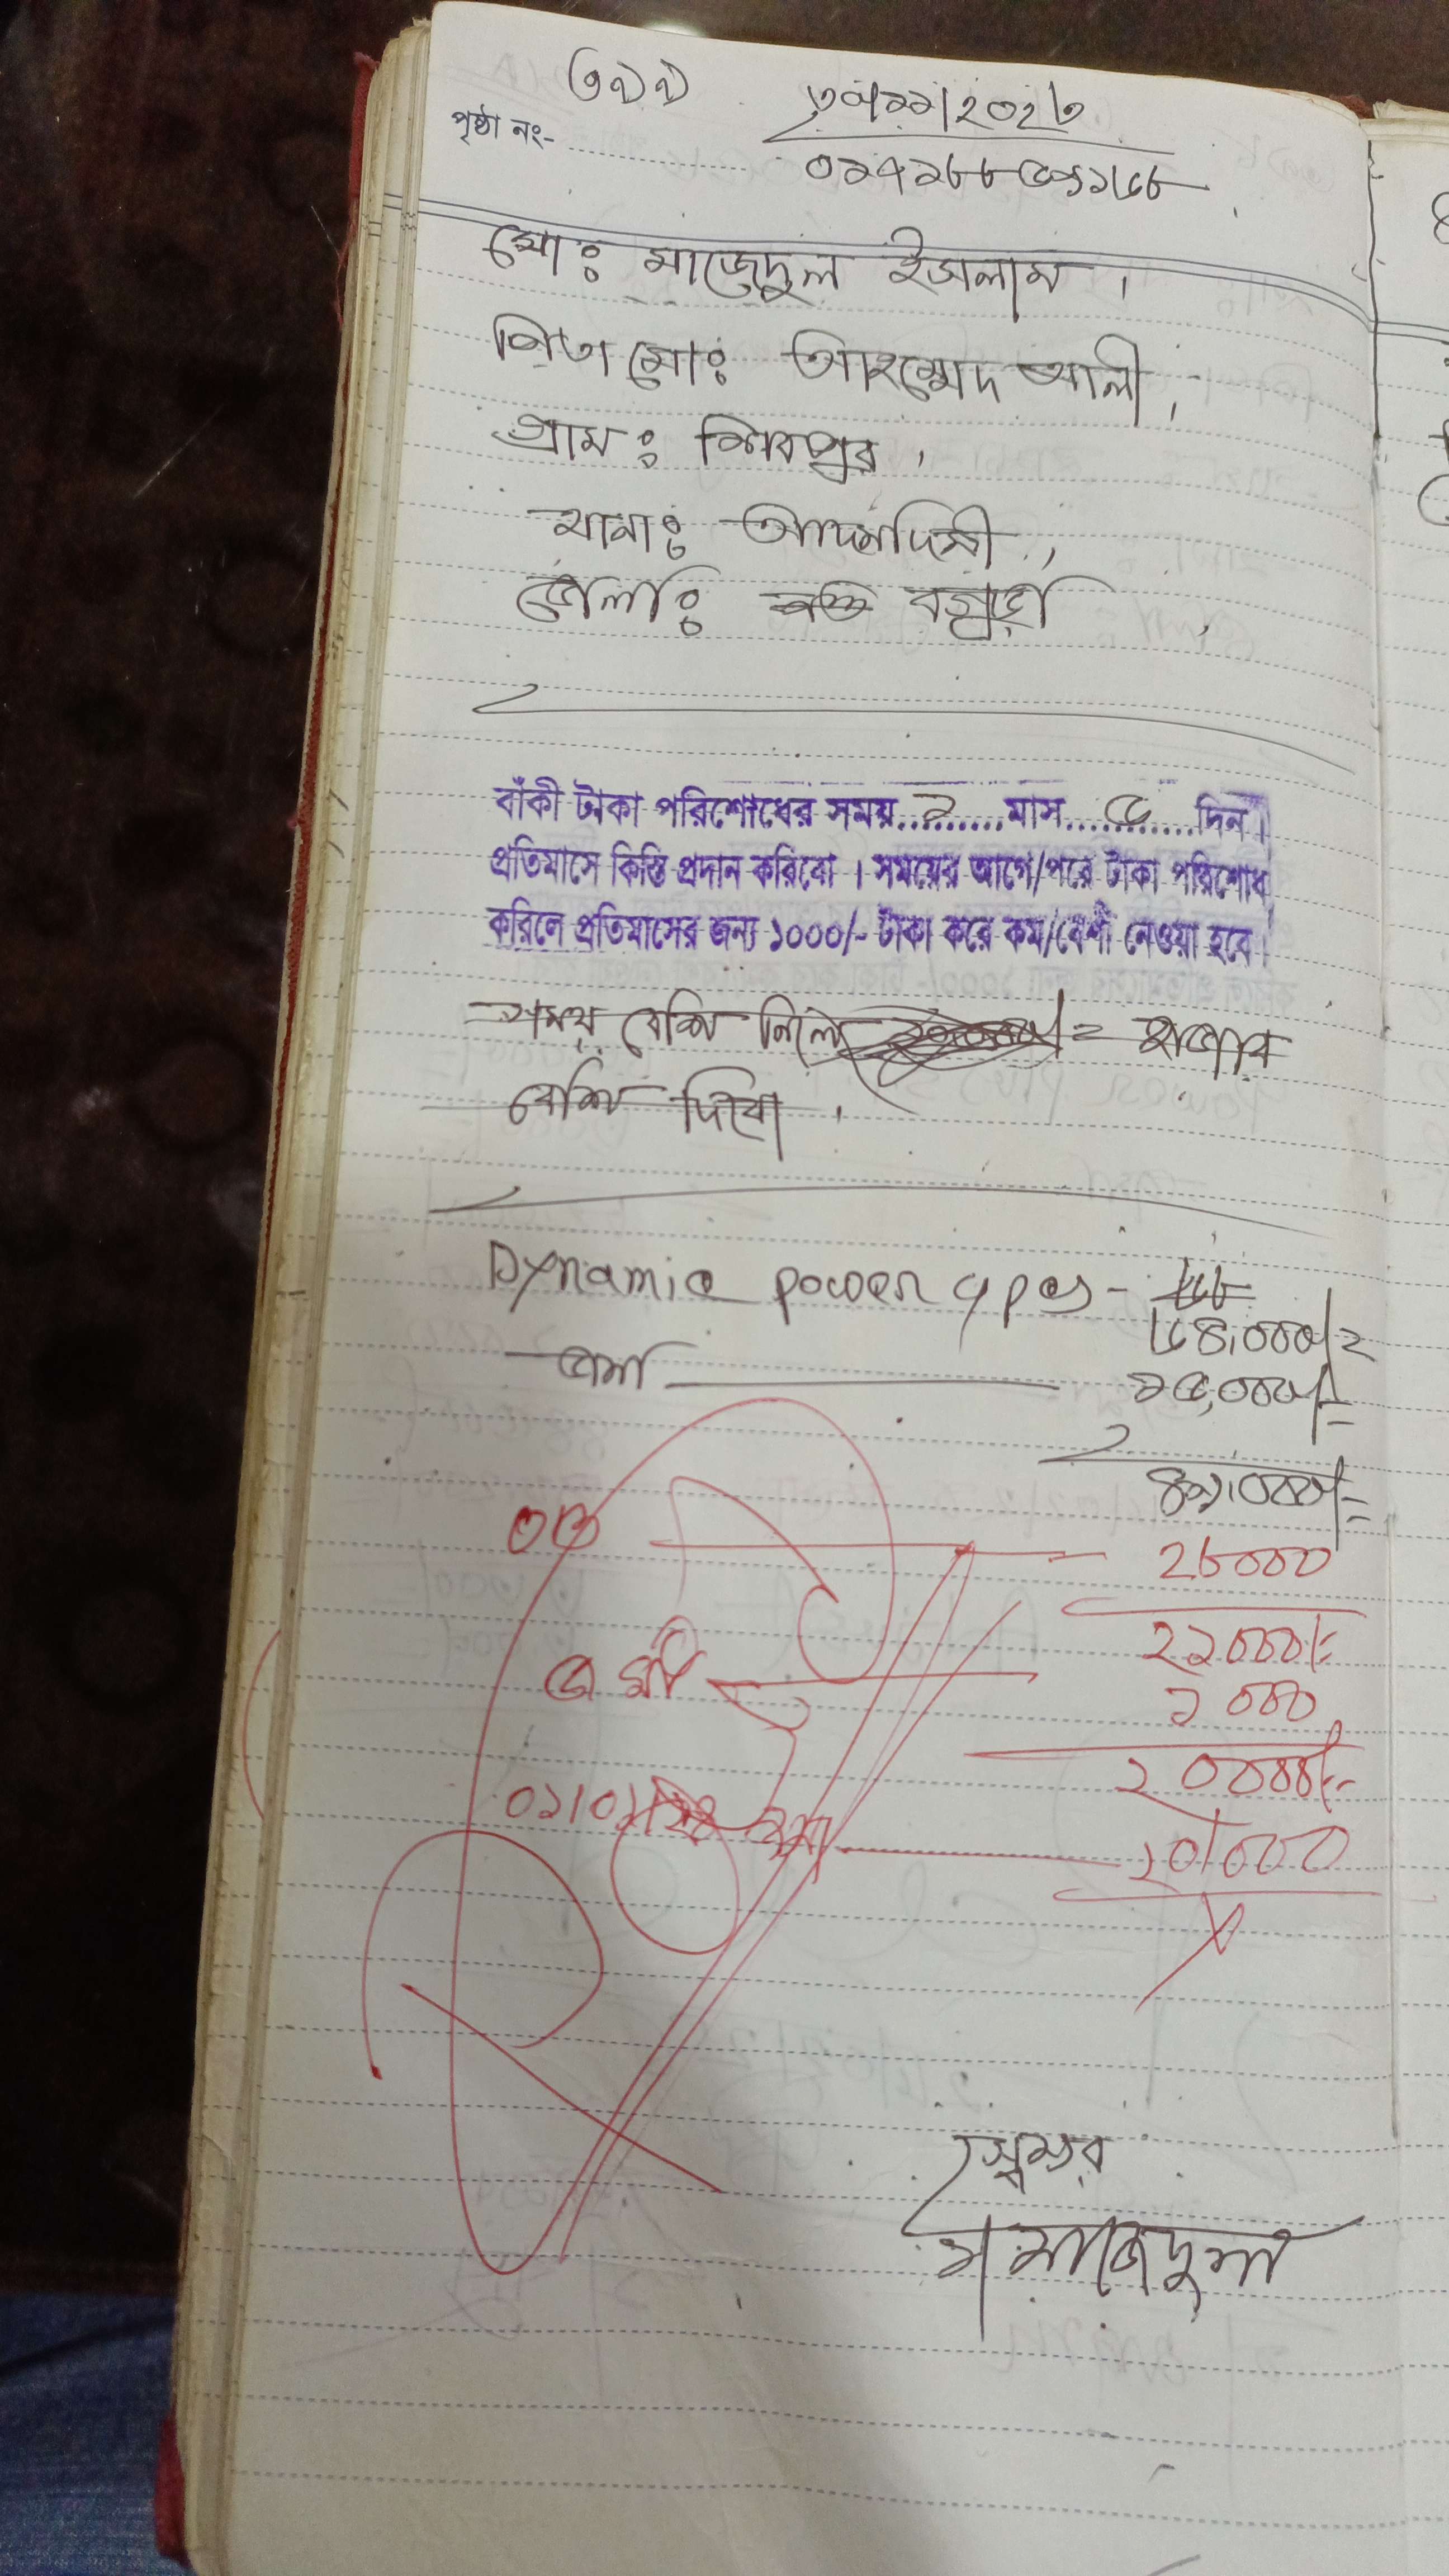 ৩১১
৩০/১১/২০২৩
পৃষ্ঠা নং-
মোঃ মাজেদুল ইসলাম।
পিতা মোঃ আহম্মেদ আলী,
গ্রাম: শিবপুর,
থানাঃ আদমদিঘী,
জেলাঃ বগুড়া,
বাঁকী টাকা পরিশোধের সময়..১..মাস..৫..দিন।
প্রতিমাসে কিস্তি প্রদান করিবো। সময়ের আগে/পরে টাকা পরিশোধ
করিলে প্রতিমাসের জন্য ১০০০/- টাকা করে কম/বেশী নেওয়া হবে।
সময় বেশি নিলে হাজার
বেশি দিবো।
Dynamic power 4 pes -
৬৪,০০০/=
জমা ১৫,০০০/=
৪৯,০০০/=
২৮০০০
২১০০০/-
জমা ১০০০
২০০০০/-
২০০০০
মাজেদুল